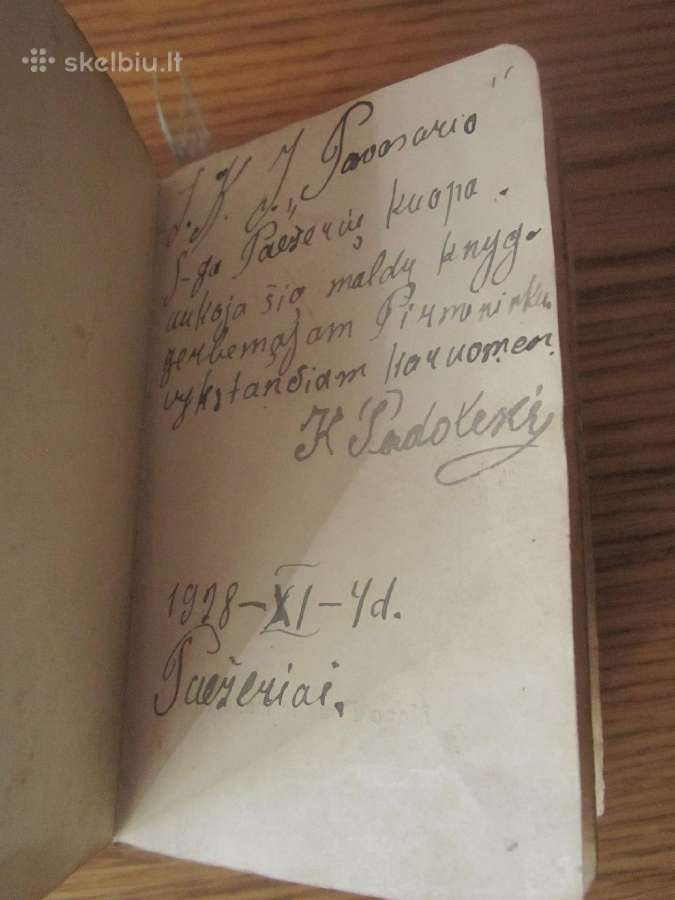 skelbiu.lt
J. K. J. „Pavasario"
S-gо Paežerių kuopa.
aukoja šią maldų knyg.
gerbemajam Pirmininkui
vykstančiam karuomen.
K Padolskį
1928-XI-4d.
Paežeriai.